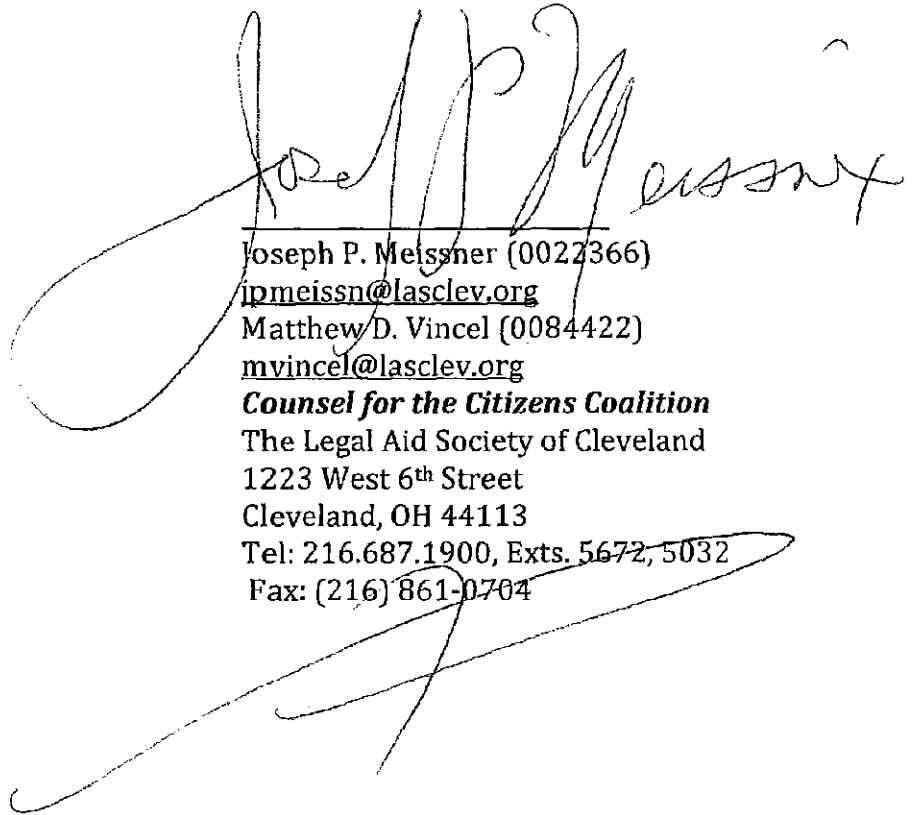 Joseph P Meissner
Joseph P. Meissner (0022366)
jpmeissn@lasclev.org
Matthew D. Vincel (0084422)
mvincel@lasclev.org
Counsel for the Citizens Coalition
The Legal Aid Society of Cleveland
1223 West 6th Street
Cleveland, OH 44113
Tel: 216.687.1900, Exts. 5672, 5032
Fax: (216) 861-0704